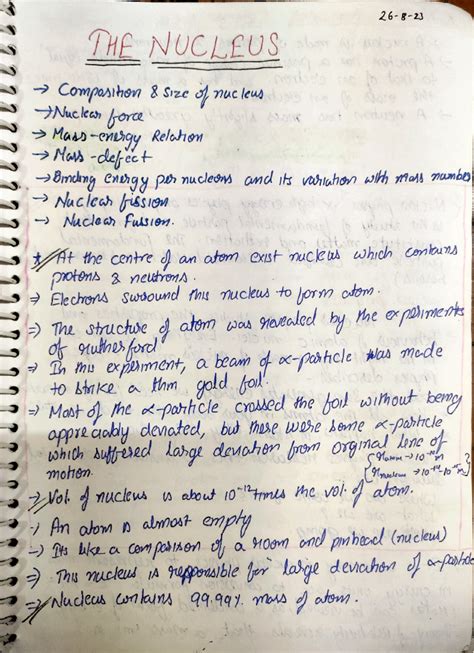 26-8-23
THE NUCLEUS
→ Composition & Size of nucleus
→ Nuclear force
→ Mass-energy Relation
→ Mass-defect
→ Binding energy per nucleons and its variation with mass number
→ Nuclear fission
→ Nuclear Fussion.
* At the centre of an atom exist nucleus which contains
protons & neutrons.
⇒ Electrons surround this nucleus to form atom.
⇒ The structure of atom was revealed by the experiments
of rutherford
⇒ In this experiment, a beam of α-particle was made
to strike a thin gold foil.
⇒ Most of the α-particle crossed the foil without being
appreciably deviated, but there were some α-particle
which suffered large deviation from orginal line of
motion.
{ r atom → 10⁻¹⁰ m
{ r nucleus → 10⁻¹⁴-10⁻¹⁵ m }
⇒ Vol. of nucleus is about 10⁻¹² times the vol. of atom.
⇒ An atom is almost empty
⇒ Its like a comparison of a room and pinhead (nucleus)
⇒ This nucleus is responsible for large deviation of α-particle
⇒ Nucleus contains 99.99% mass of atom.